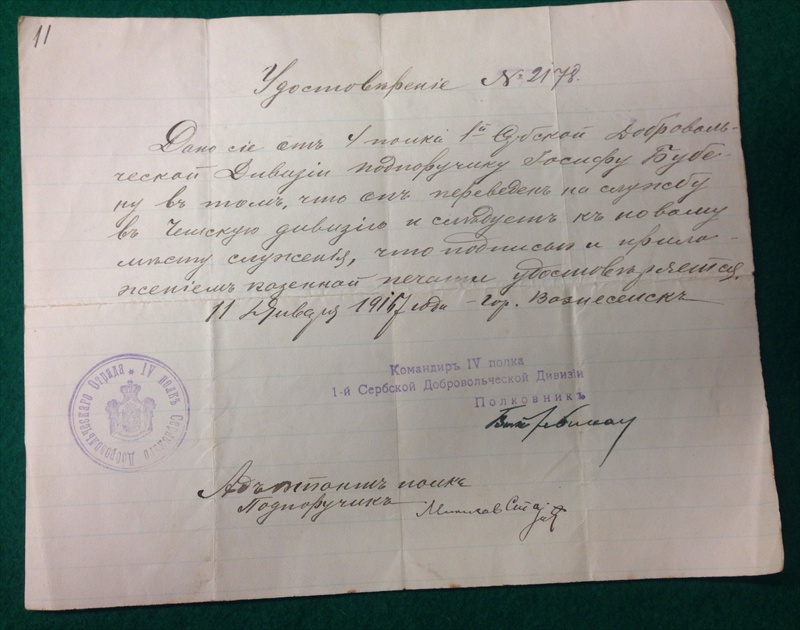 11
Удостовѣреніе № 2178.
Дано сіе отъ 4 полка 1й Сербской Доброволь-
ческой Дивизіи подпоручику Іосифу Бубе-
ну въ томъ, что онъ переведенъ на службу
въ Чешскую дивизію и слѣдуетъ къ новому
мѣсту служенія, что подписью и прило-
женіемъ казенной печати удостовѣряется.
11 Января 1917 года - гор. Вознесенскъ
Командиръ IV полка
1-й Сербской Добровольческой Дивизіи
Полковникъ
IV полкъ Сербскаго Добровольческаго Отряда
Адъютантъ полка
Подпоручикъ